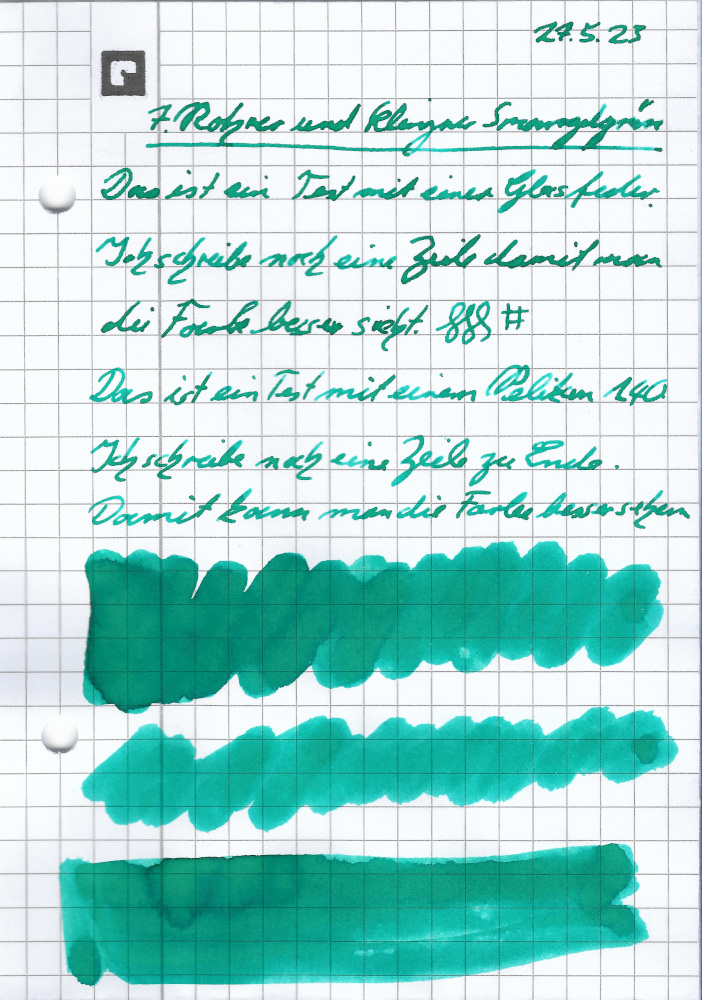 27.5.23
7. Rohrer und Klingner Smaragdgrün
Das ist ein Test mit einer Glasfeder.
Ich schreibe noch eine Zeile damit man
die Farbe besser sieht. §§§ #
Das ist ein Test mit einem Pelikan 140
Ich schreibe noch eine Zeile zu Ende.
Damit kann man die Farbe besser sehen